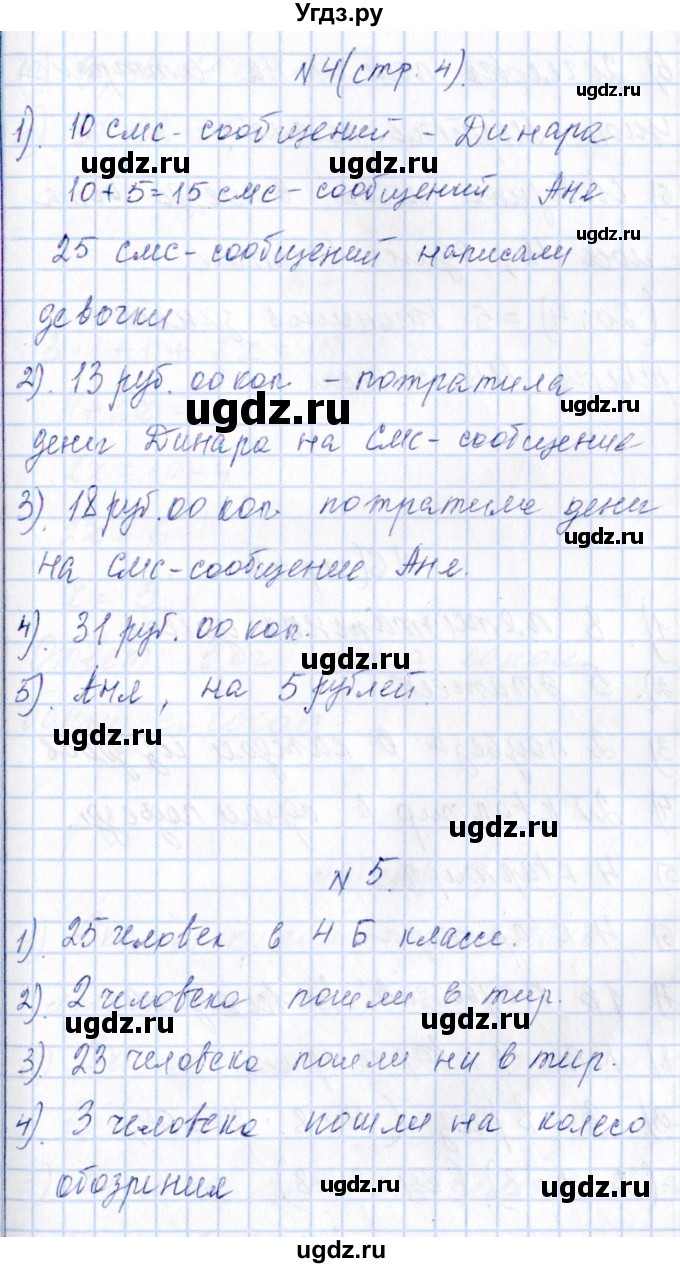 Угдз.ру
N 4 (стр. 4).
ugdz.ru
1). 10 смс-сообщений - Динара
ugdz.ru ugdz.ru
10 + 5 = 15 смс-сообщений Аня
ugdz.ru
25 смс-сообщений написали
девочки
2). 13 руб. 00 коп - потратила
ugdz.ru ugdz.ru
денег Динара на Смс-сообщение
3). 18 руб. 00 коп. потратила денег
ugdz.ru
на Смс-сообщение Аня.
4). 31 руб. 00 коп.
ugdz.ru
5). Аня, на 5 рублей.
ugdz.ru
ugdz.ru
N 5.
1). 25 человек в 4 Б классе.
2). 2 человека пошли в тир.
ugdz.ru ugdz.ru
3). 23 человека пошли ни в тир.
4). 3 человека пошли на колесо
обозрения
ugdz.ru ugdz.ru
ugdz.ru